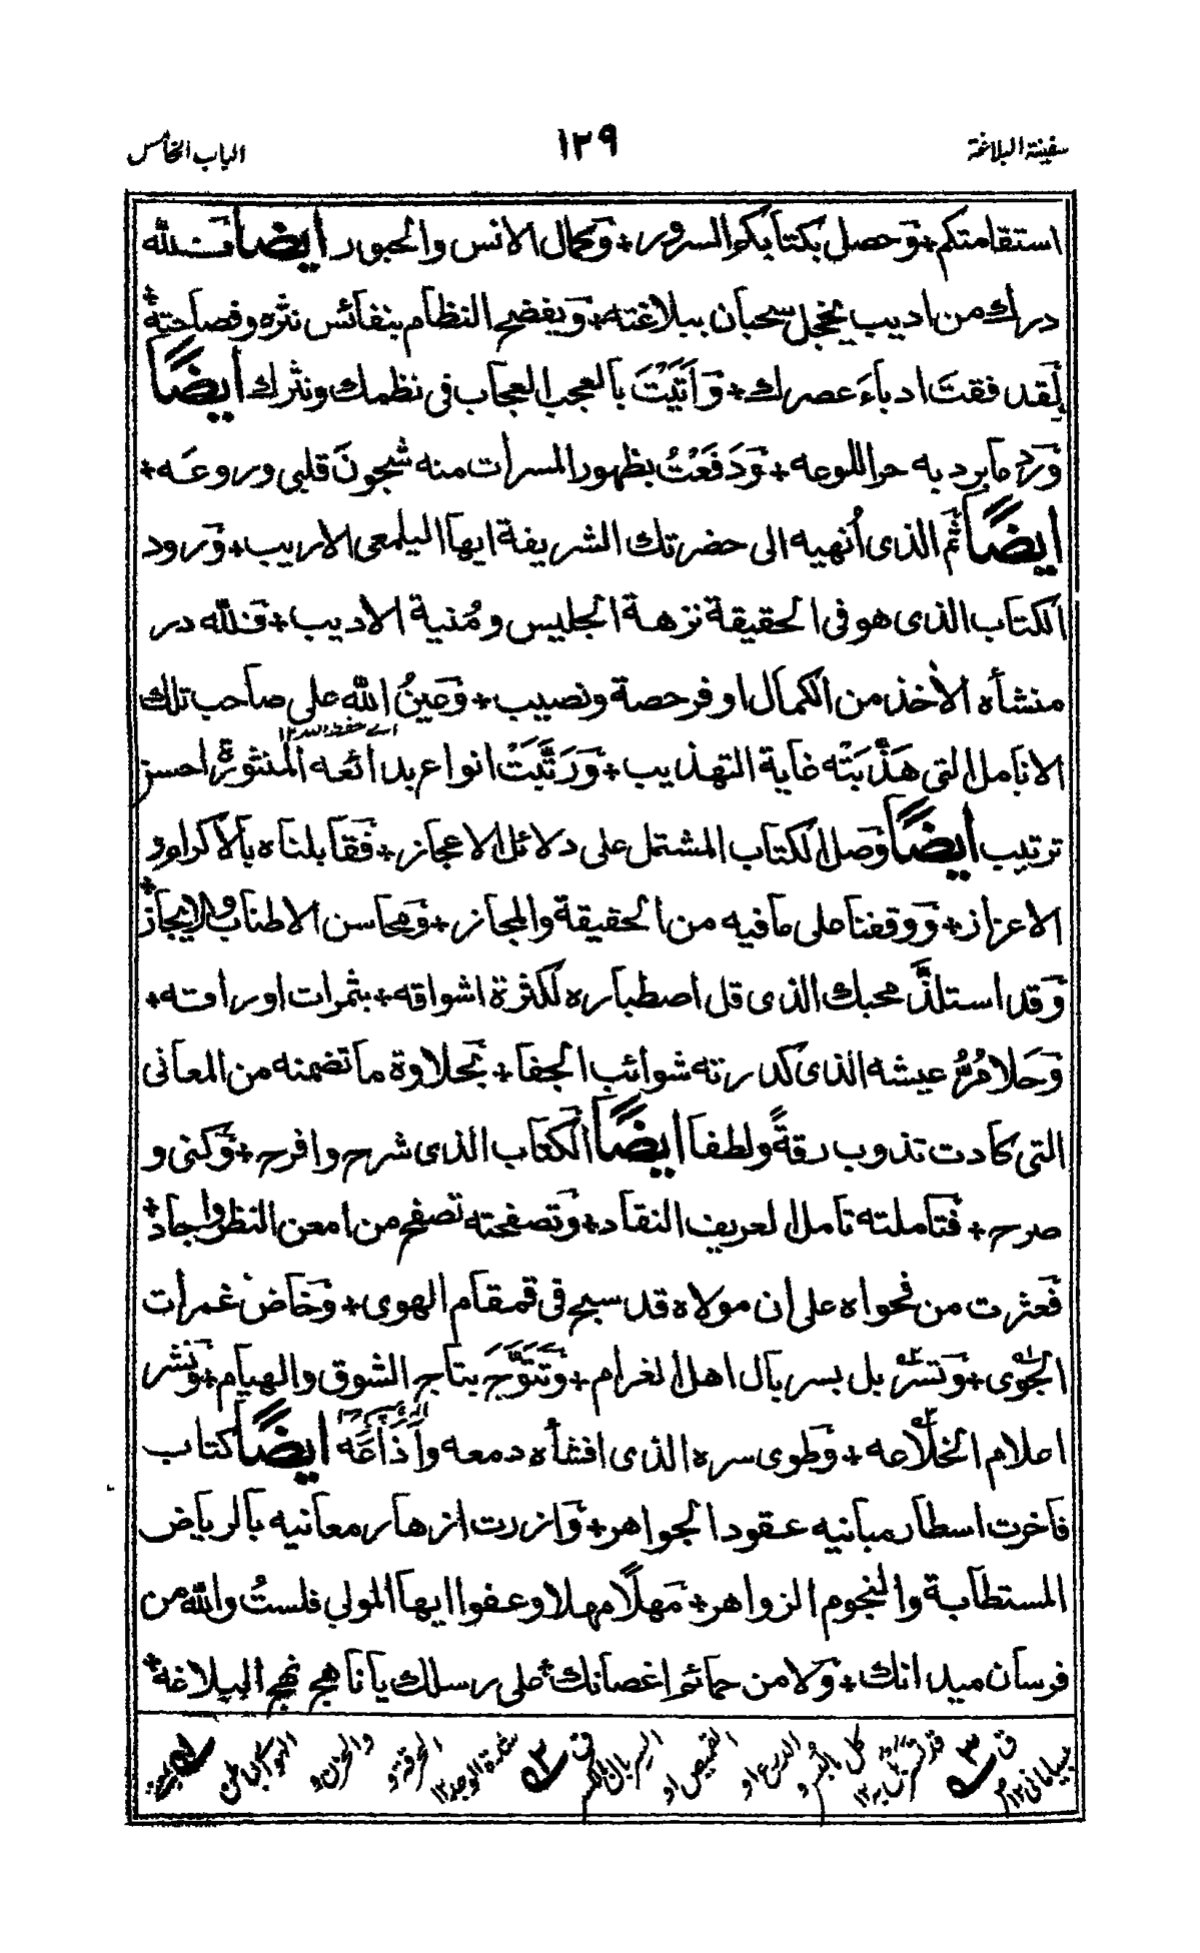 سفينة البلاغة
١٢٩
الباب الخامس
استقامتكم + وَحصل بكتابكم السرور + وَكمال الانس والحبور ايضًا فَلله
درك من اديب يخجل سحبان ببلاغته + وَيفضح النظام بنفائس نثره وفصاحته +
لَقد فقتَ ادباءَ عصرك + وَاَتَيْتَ بالعجب العجاب فى نظمك ونثرك ايضًا
وَرَد ما برد به حر اللوعه + وَدَفَعْتُ بظهور المسرات منه شجونَ قلبى وروعَه +
ايضًا ثم الذى اُنهيه الى حضرتك الشريفة ايها اليلمعى الاريب + وَرود
الكتاب الذى هو فى الحقيقة نزهة الجليس ومُنية الاديب + فَلله در
منشأه الأخذ من الكمال اوفر حصة ونصيب + وَعينُ الله على صاحب تلك
اے حفظه الله ١٢
الانامل التى هَذَّبَتْه غاية التهذيب + وَرَتَّبَتْ انواع بدائعه المنثورة احسن
ترتيب ايضًا وَصل الكتاب المشتمل على دلائل الاعجاز + فَقابلناه بالاكرام و
الاعزاز + وَوقفنا على ما فيه من الحقيقة والمجاز + وَمحاسن الاطناب والايجاز +
وَقد استلذَّ محبك الذى قل اصطباره لكثرة اشواقه + بثمرات اوراقه +
وَحَلا مُرُّ عيشه الذى كدرته شوائب الجفا + بحلاوة ما تضمنه من المعانى
التى كادت تذوب رقةً ولطفا ايضًا الكتاب الذى شرح وافرح + وَكنى و
صرح + فَتاملته تامل العريف النقاد + وَتصفحته تصفح من امعن النظر واجاد +
فَعثرت من فحواه على ان مولاه قد سبح فى قمقام الهوى + وَخاض غمرات
الجوٰى + وَتسربل بسربال اهل الغرام + وَتَتَوَّجَ بتاج الشوق والهيام + وَنشر
اعلام الخلاعه + وَطوى سره الذى افشأه دمعه وأَذَاعَه ايضًا كتاب
فاخرت اسطار مبانيه عقود الجواهر + وَازرت ازهار معانيه بالرياض
المستطابة والنجوم الزواهر + مَهلًا مهلا وعفوا ايها المولى فلستُ والله من
فرسان ميدانك + وَلا من حمائم اغصانك + على رسلك يا ناهج نهج البلاغة +
الهوى الباطن والحزن و الحرقة و شدة الوجد ١٢ ق السربال بالكسر القميص او الدرع او كل ما لُبس و قد تسربل به ١٢ ق